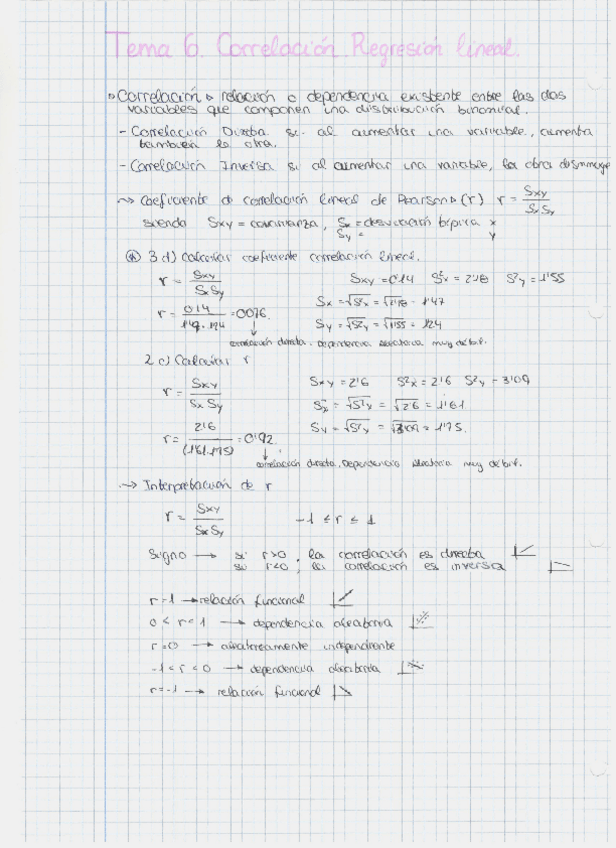 Tema 6. Correlación. Regresión lineal.
Correlación → relación o dependencia existente entre las dos
variables que componen una distribución binomial.
- Correlación Directa si al aumentar una variable, aumenta
también la otra.
- Correlación Inversa si al aumentar una variable, la otra disminuye
~> Coeficiente de correlación lineal de Pearson → (r) r = Sxy / SxSy
siendo Sxy = covarianza, Sx = desviación típica x
Sy = y
3 d) Calcular coeficiente correlación lineal.
r = Sxy / SxSy Sxy = 0'14 S²x = 2'18 S²y = 1'55
Sx = √S²x = √2'18 = 1'47
r = 0'14 / 1'47 · 1'24 = 0'076. Sy = √S²y = √1'55 = 1'24
correlación directa. Dependencia aleatoria muy débil.
2 c) Calcular r
r = Sxy / Sx Sy Sxy = 2'6 S²x = 2'6 S²y = 3'09
Sx = √S²x = √2'6 = 1'61
r = 2'6 / (1'61·1'75) = 0'92 Sy = √S²y = √3'09 = 1'75.
correlación directa. Dependencia aleatoria muy débil.
~> Interpretación de r
r = Sxy / SxSy -1 ≤ r ≤ 1
Signo → si r>0, la correlación es directa
si r<0, la correlación es inversa
r=1 → relación funcional
0 < r < 1 → dependencia aleatoria
r=0 → aleatoriamente independiente
-1 < r < 0 → dependencia aleatoria
r=-1 → relación funcional